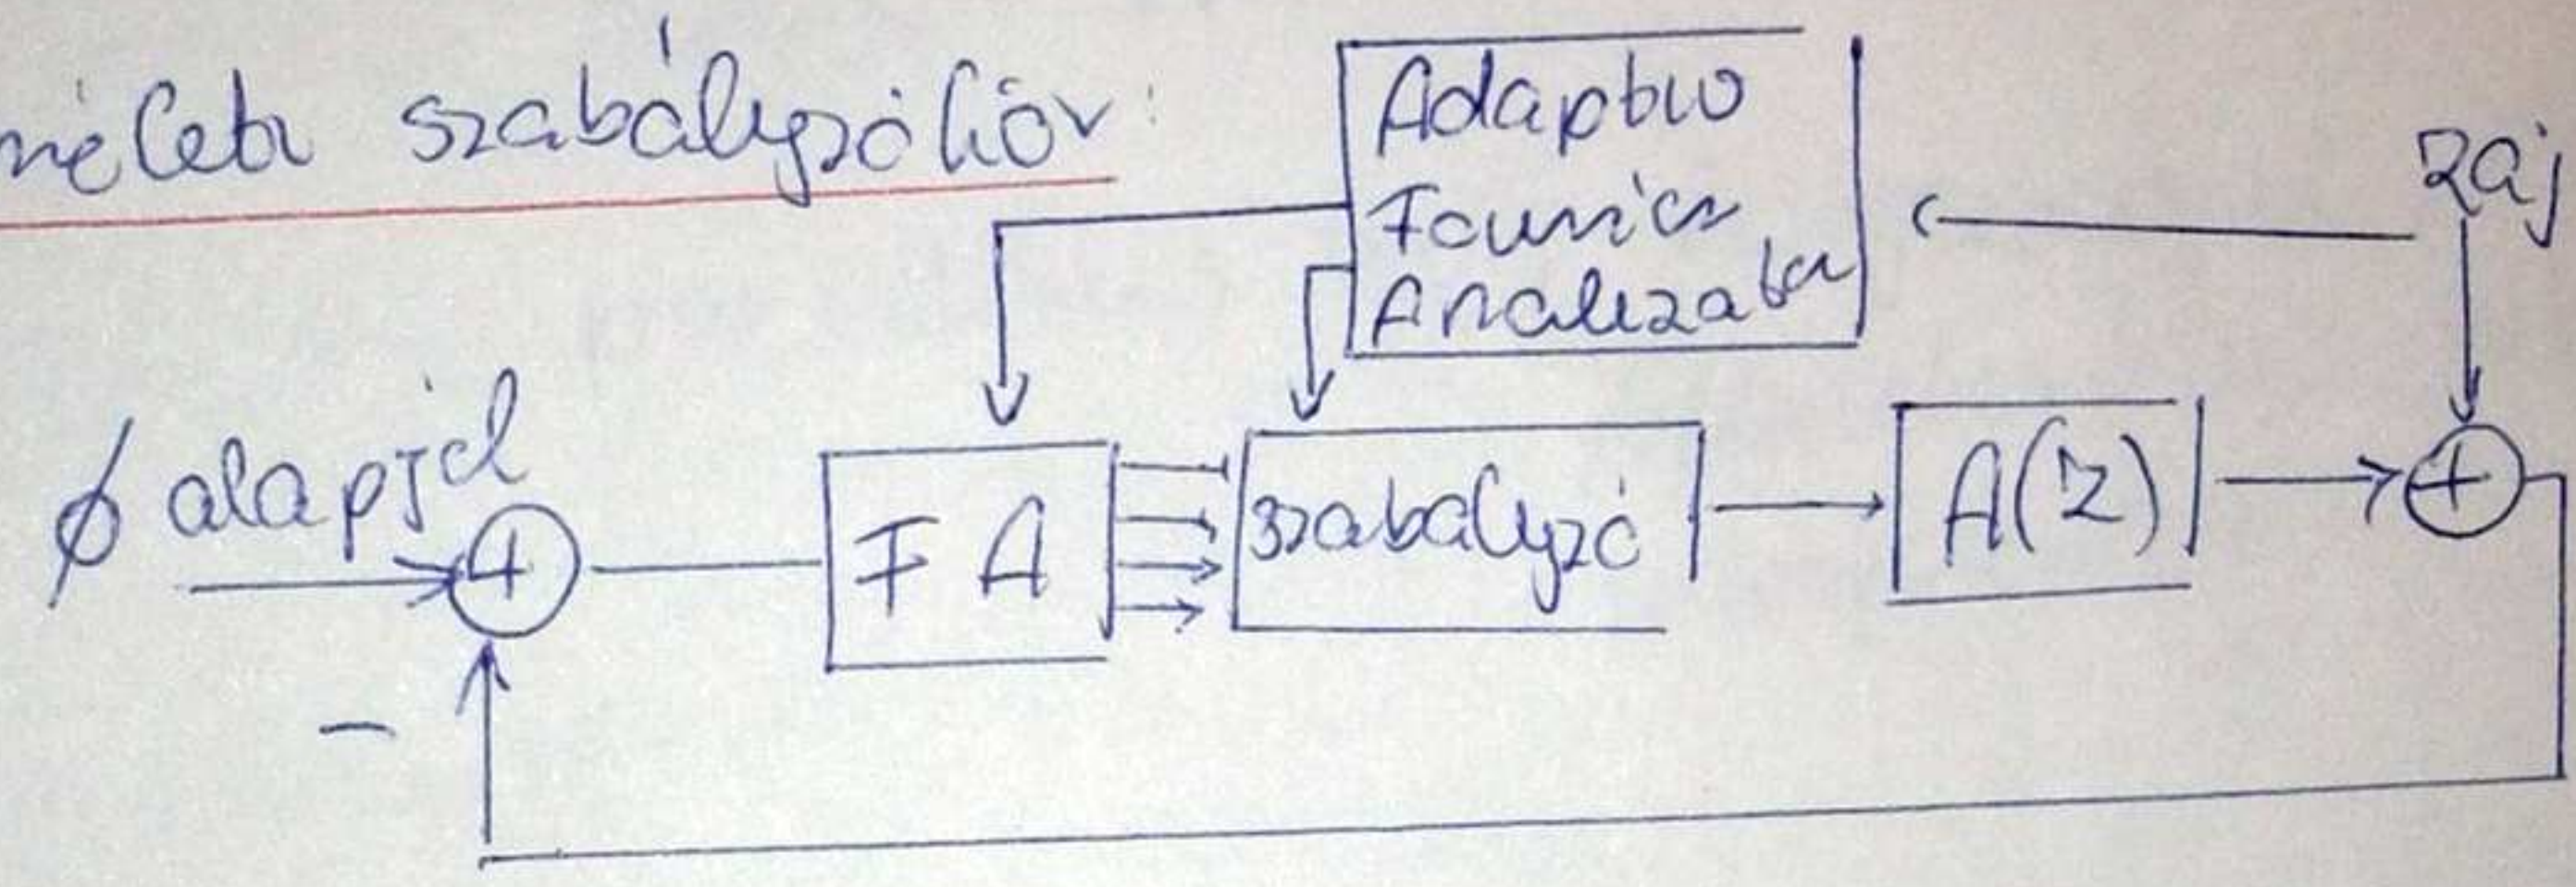 szabályzókör:
Adaptiv
Fourier
Analizator
zaj
∅ alapjel
+
F A
szabályzó
A(z)
+
-